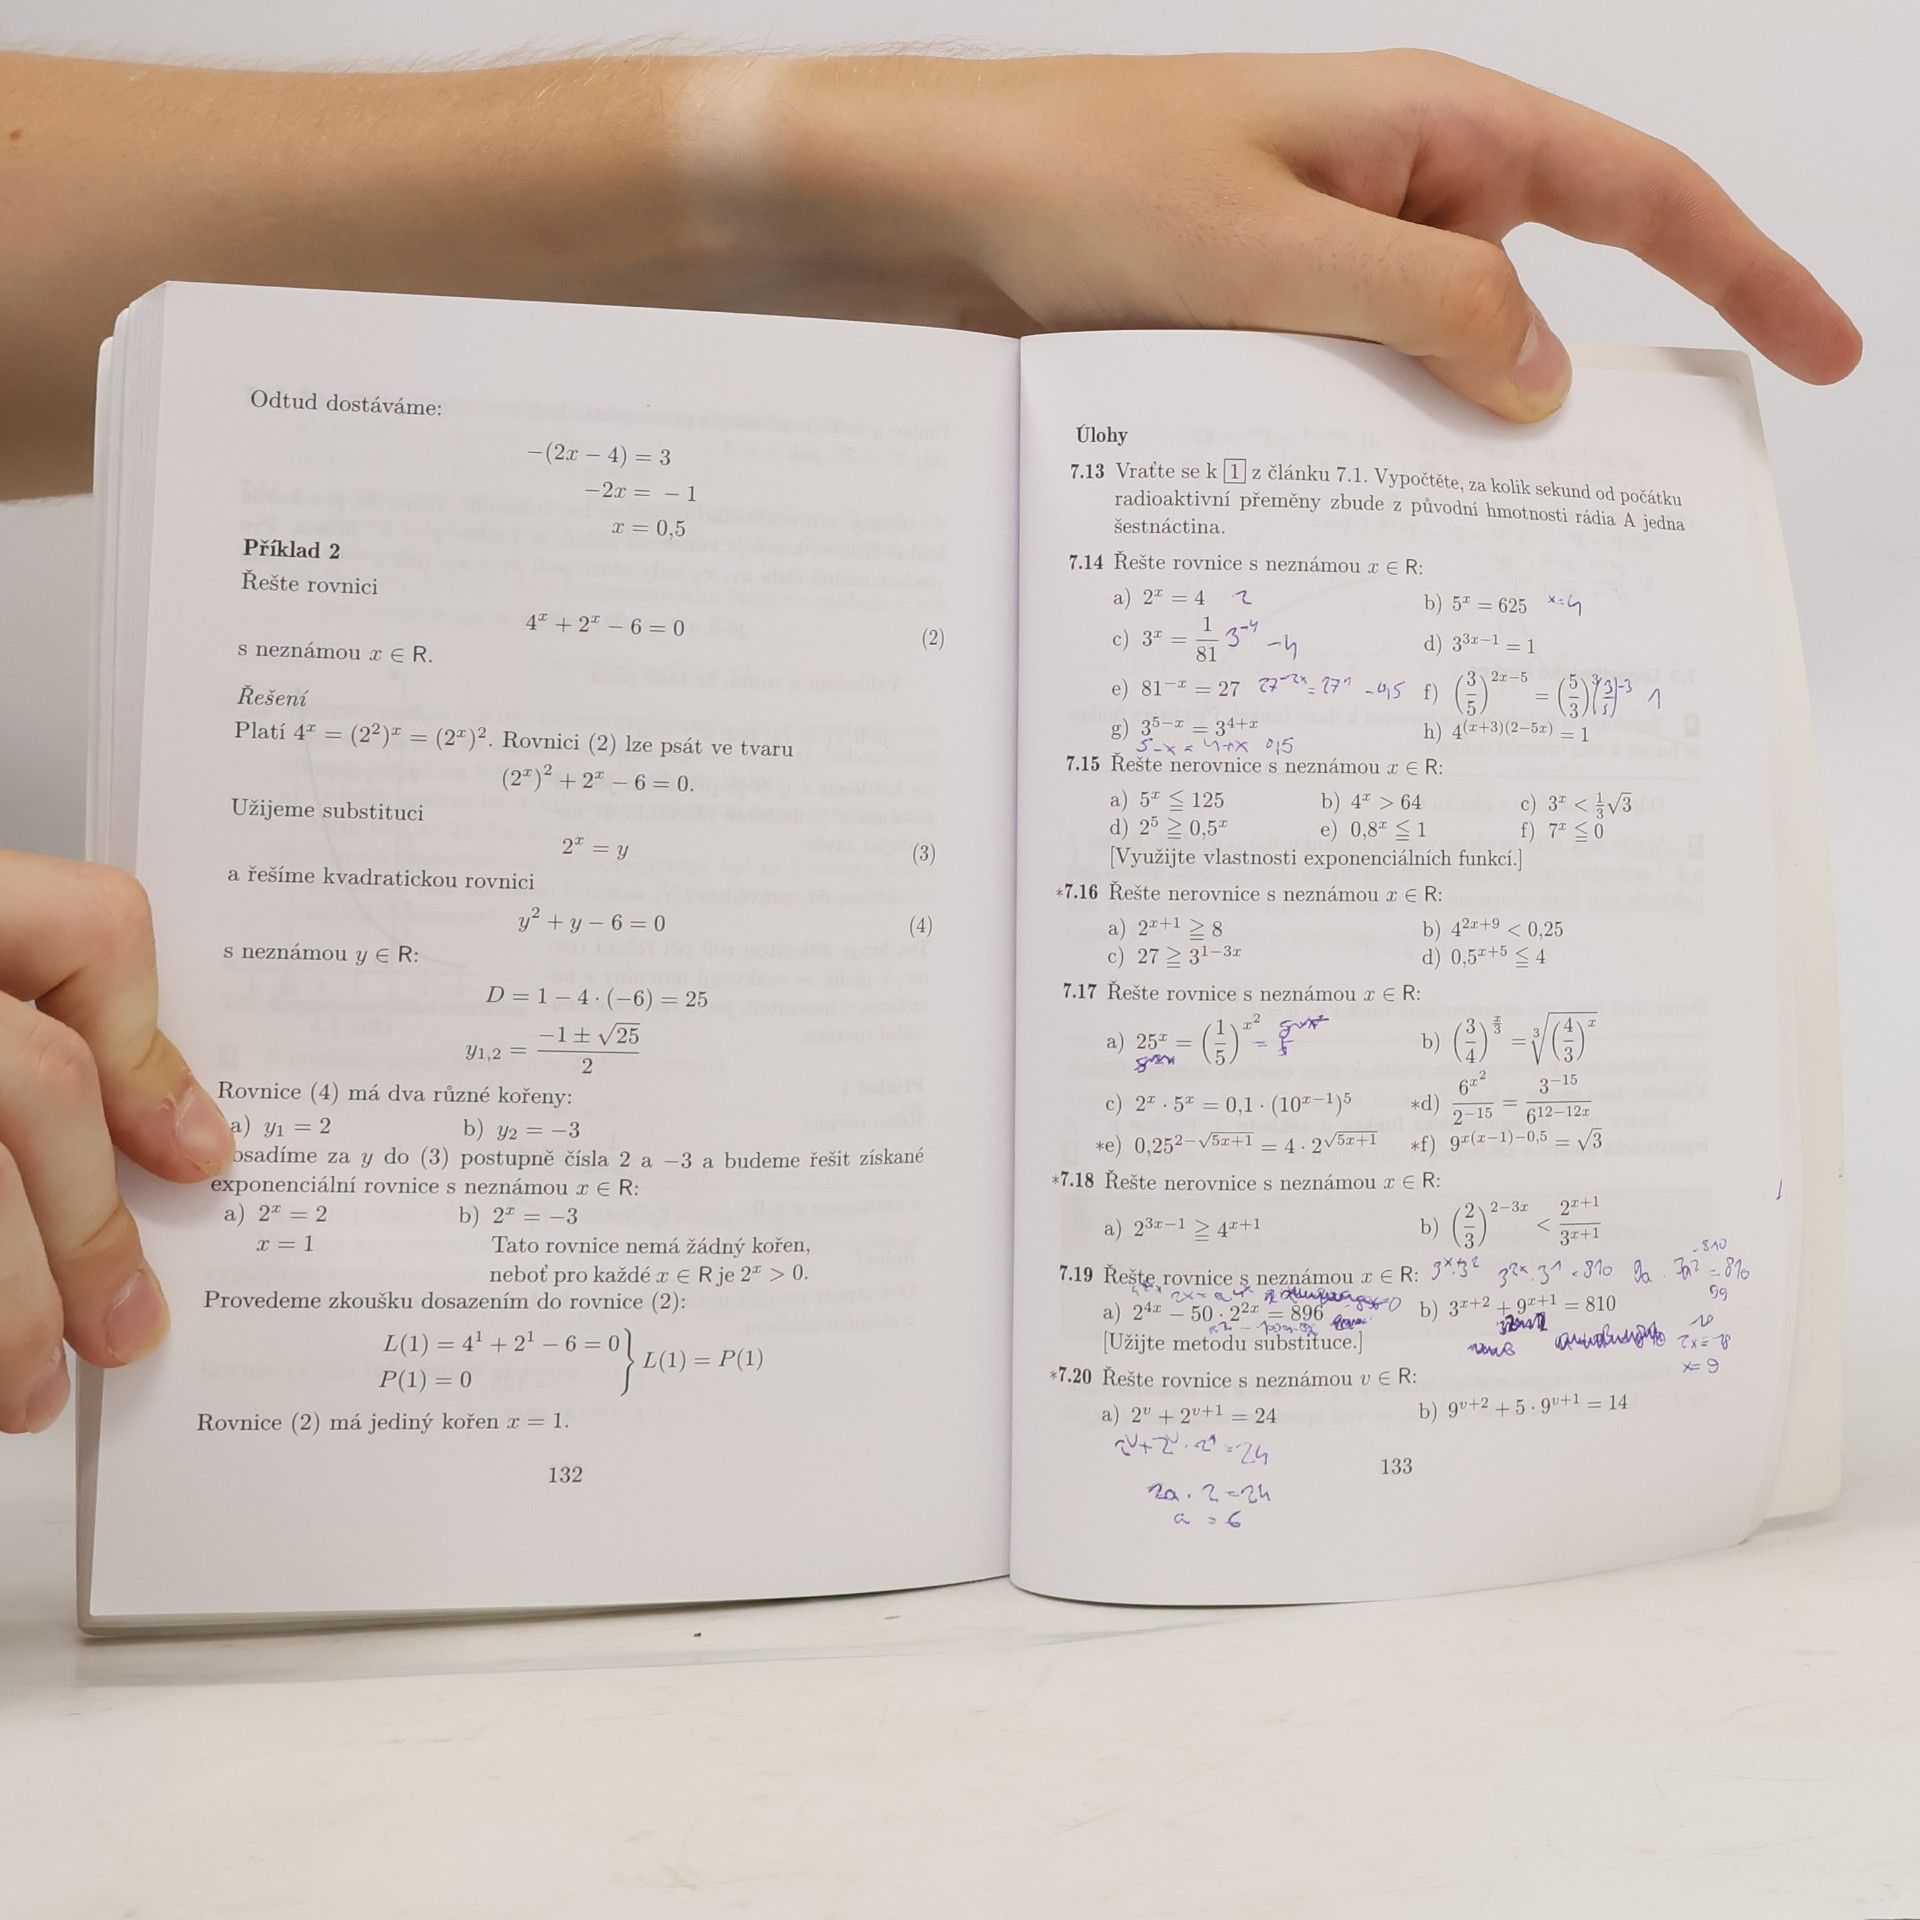 Odtud dostáváme:
−(2x − 4) = 3
−2x = − 1
x = 0,5
Příklad 2
Řešte rovnici
4ˣ + 2ˣ − 6 = 0 (2)
s neznámou x ∈ R.
Řešení
Platí 4ˣ = (2²)ˣ = (2ˣ)². Rovnici (2) lze psát ve tvaru
(2ˣ)² + 2ˣ − 6 = 0.
Užijeme substituci
2ˣ = y (3)
a řešíme kvadratickou rovnici
y² + y − 6 = 0 (4)
s neznámou y ∈ R:
D = 1 − 4 · (−6) = 25
y₁,₂ = (−1 ± √25)/2
Rovnice (4) má dva různé kořeny:
a) y₁ = 2 b) y₂ = −3
osadíme za y do (3) postupně čísla 2 a −3 a budeme řešit získané
exponenciální rovnice s neznámou x ∈ R:
a) 2ˣ = 2 b) 2ˣ = −3
x = 1 Tato rovnice nemá žádný kořen,
neboť pro každé x ∈ R je 2ˣ > 0.
Provedeme zkoušku dosazením do rovnice (2):
L(1) = 4¹ + 2¹ − 6 = 0
P(1) = 0 } L(1) = P(1)
Rovnice (2) má jediný kořen x = 1.
132
Úlohy
7.13 Vraťte se k 1 z článku 7.1. Vypočtěte, za kolik sekund od počátku
radioaktivní přeměny zbude z původní hmotnosti rádia A jedna
šestnáctina.
7.14 Řešte rovnice s neznámou x ∈ R:
a) 2ˣ = 4 2 b) 5ˣ = 625 x=4
c) 3ˣ = 1/81 3⁻⁴ −4 d) 3^(3x−1) = 1
e) 81⁻ˣ = 27 27^(−2x) = 27¹ −0,5 f) (3/5)^(2x−5) = (5/3)³ (3/5)⁻³ 1
g) 3^(5−x) = 3^(4+x) h) 4^((x+3)(2−5x)) = 1
5−x = 4+x 0,5
7.15 Řešte nerovnice s neznámou x ∈ R:
a) 5ˣ ≦ 125 b) 4ˣ > 64 c) 3ˣ < 1/3 √3
d) 2⁵ ≧ 0,5ˣ e) 0,8ˣ ≦ 1 f) 7ˣ ≦ 0
[Využijte vlastnosti exponenciálních funkcí.]
*7.16 Řešte nerovnice s neznámou x ∈ R:
a) 2^(x+1) ≧ 8 b) 4^(2x+9) < 0,25
c) 27 ≧ 3^(1−3x) d) 0,5^(x+5) ≦ 4
7.17 Řešte rovnice s neznámou x ∈ R:
a) 25ˣ = (1/5)^(x²) b) (3/4)^(x/3) = ∛((4/3)ˣ)
c) 2ˣ · 5ˣ = 0,1 · (10^(x−1))⁵ *d) 6^(x²)/2⁻¹⁵ = 3⁻¹⁵/6^(12−12x)
*e) 0,25^(2−√(5x+1)) = 4 · 2^(√(5x+1)) *f) 9^(x(x−1)−0,5) = √3
*7.18 Řešte nerovnice s neznámou x ∈ R:
a) 2^(3x−1) ≧ 4^(x+1) b) (2/3)^(2−3x) < 2^(x+1)/3^(x+1)
7.19 Řešte rovnice s neznámou x ∈ R: 3ˣ·3² 3²ˣ·3¹ = 810 9a · 3a² = 810
a) 2⁴ˣ − 50 · 2²ˣ = 896 b) 3^(x+2) + 9^(x+1) = 810
[Užijte metodu substituce.]
x=9
*7.20 Řešte rovnice s neznámou v ∈ R:
a) 2ᵛ + 2^(v+1) = 24 b) 9^(v+2) + 5 · 9^(v+1) = 14
2ᵛ + 2ᵛ · 2¹ = 24
2a · 2 = 24
a = 6
133